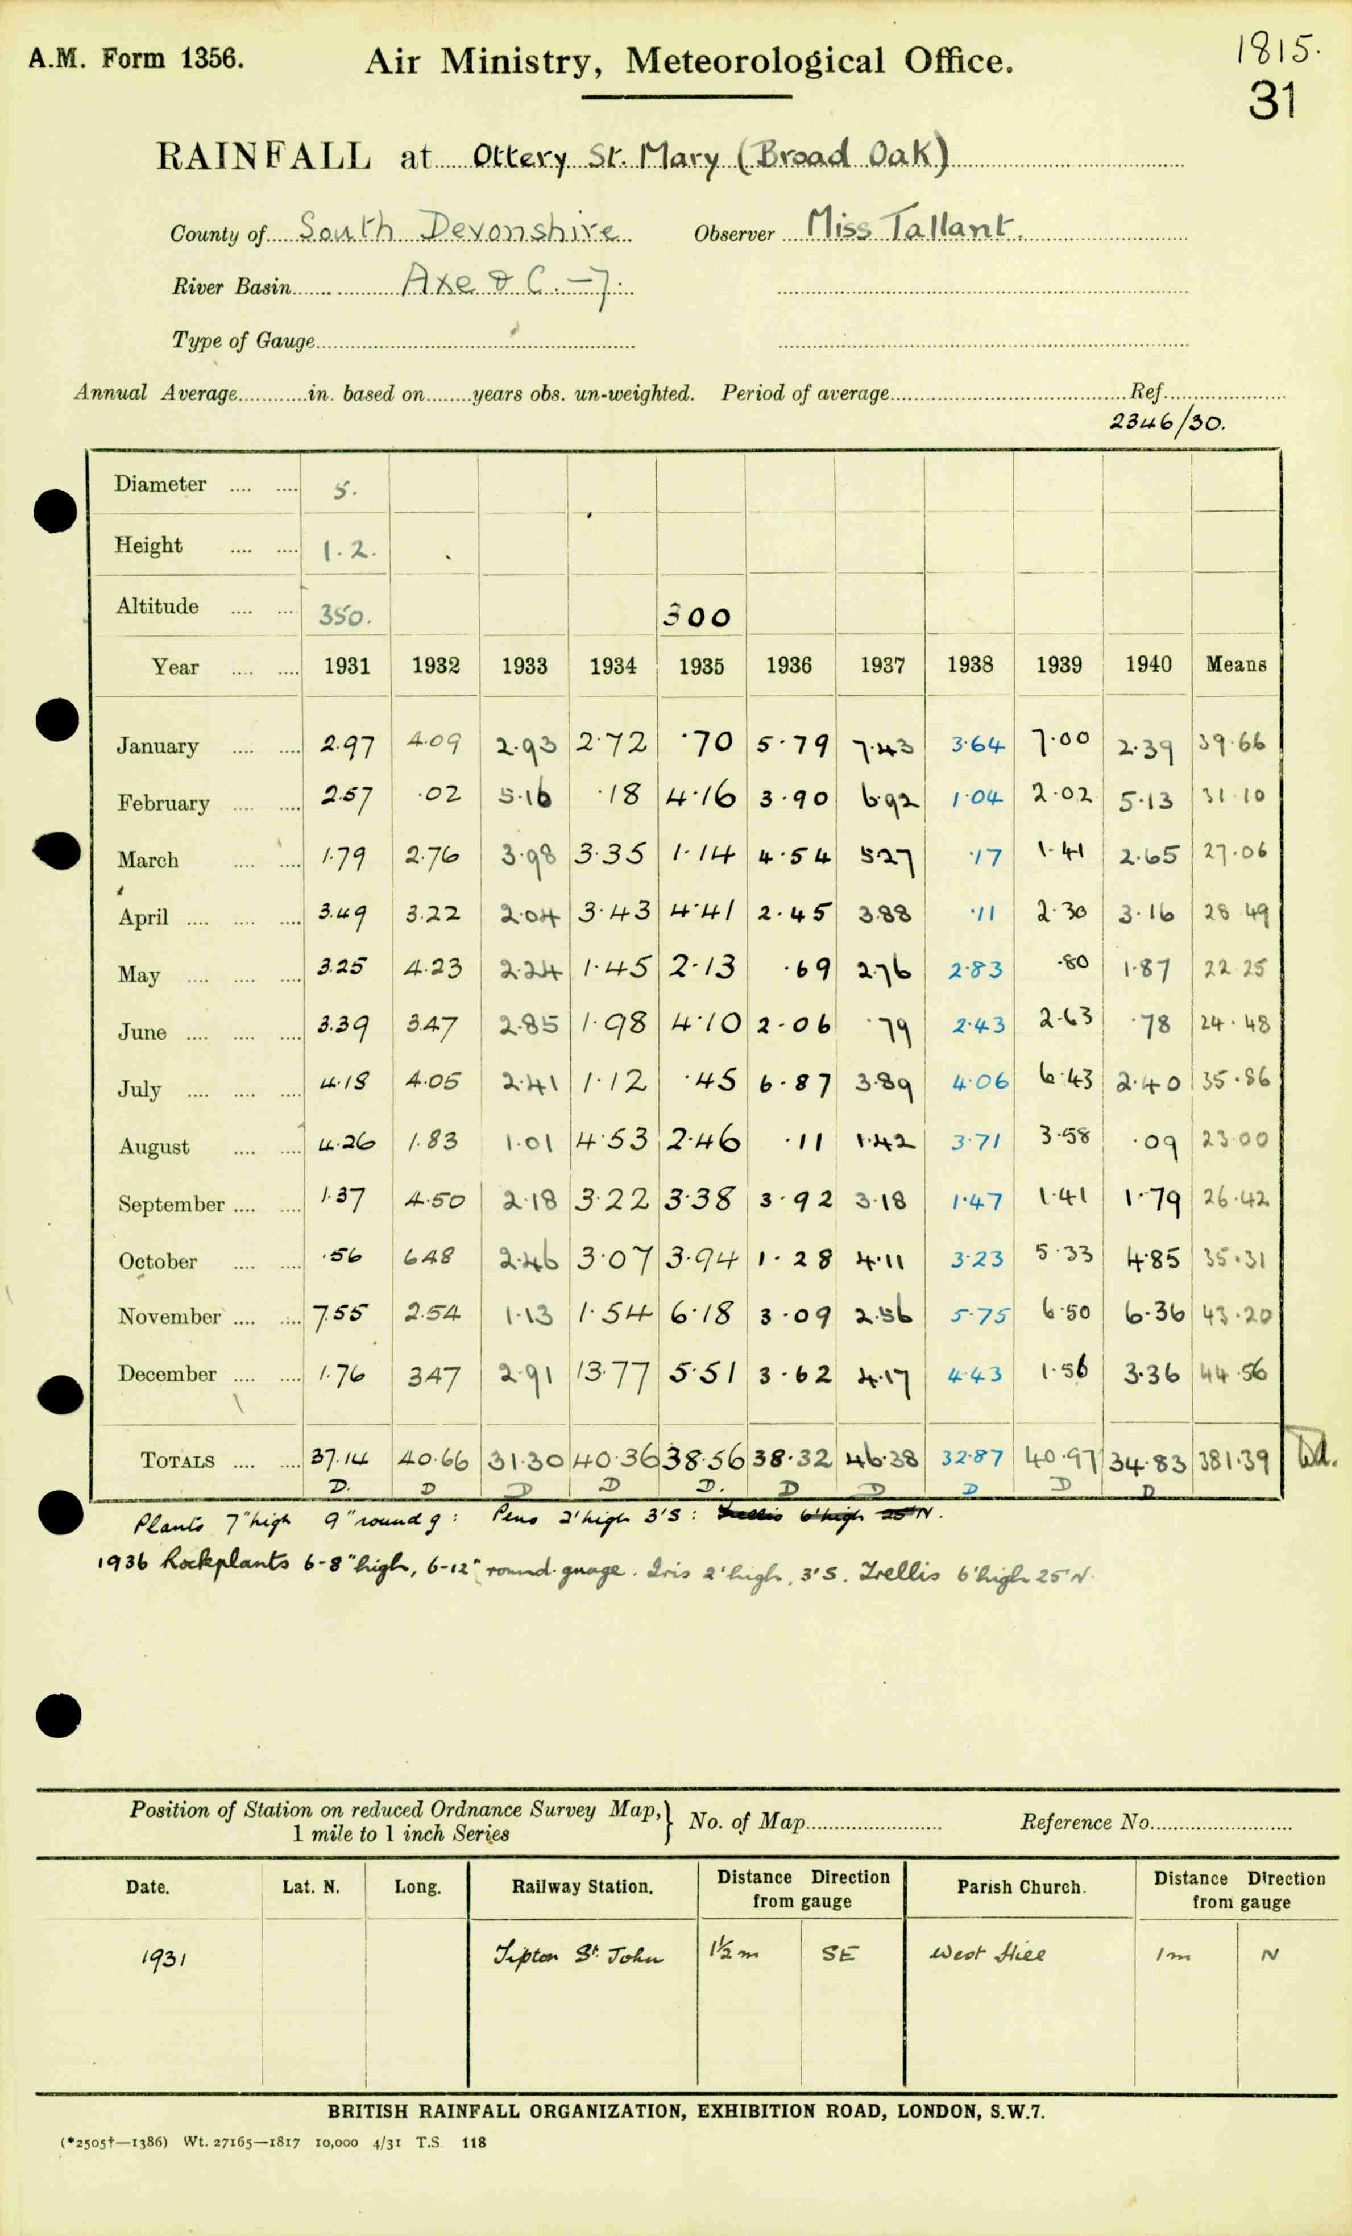 A.M. Form 1356.
Air Ministry, Meteorological Office.
1815.
31
RAINFALL at Ottery St. Mary (Broad Oak)
County of South Devonshire Observer Miss Tallant.
River Basin Axe & C. –7.
Type of Gauge
Annual Average in. based on years obs. un-weighted. Period of average Ref.
2346/30.
Diameter 5.
Height 1.2.
Altitude 350. 300
Year 1931 1932 1933 1934 1935 1936 1937 1938 1939 1940 Means
January 2.97 4.09 2.93 2.72 .70 5.79 7.43 3.64 7.00 2.39 39.66
February 2.57 .02 5.16 .18 4.16 3.90 6.92 1.04 2.02 5.13 31.10
March 1.79 2.76 3.98 3.35 1.14 4.54 5.27 .17 1.41 2.65 27.06
April 3.49 3.22 2.04 3.43 4.41 2.45 3.88 .11 2.30 3.16 28.49
May 3.25 4.23 2.24 1.45 2.13 .69 2.76 2.83 .80 1.87 22.25
June 3.39 3.47 2.85 1.98 4.10 2.06 .79 2.43 2.63 .78 24.48
July 4.18 4.05 2.41 1.12 .45 6.87 3.89 4.06 6.43 2.40 35.86
August 4.26 1.83 1.01 4.53 2.46 .11 1.42 3.71 3.58 .09 23.00
September 1.37 4.50 2.18 3.22 3.38 3.92 3.18 1.47 1.41 1.79 26.42
October .56 6.48 2.46 3.07 3.94 1.28 4.11 3.23 5.33 4.85 35.31
November 7.55 2.54 1.13 1.54 6.18 3.09 2.56 5.75 6.50 6.36 43.20
December 1.76 3.47 2.91 13.77 5.51 3.62 4.17 4.43 1.56 3.36 44.56
TOTALS 37.14 40.66 31.30 40.36 38.56 38.32 46.38 32.87 40.97 34.83 381.39
D. D D D D. D D D D D
Plants 7" high 9" round g: Pens 2' high 3'S: Trellis 6' high 25' N.
1936 Rockplants 6-8" high, 6-12" round guage. Iris 2' high, 3'S. Trellis 6' high 25' N.
Position of Station on reduced Ordnance Survey Map, No. of Map Reference No.
1 mile to 1 inch Series
Date. Lat. N. Long. Railway Station. Distance Direction from gauge Parish Church. Distance Direction from gauge
1931 Tipton St. John 1½ m SE West Hill 1m N
BRITISH RAINFALL ORGANIZATION, EXHIBITION ROAD, LONDON, S.W.7.
(*2505†—1386) Wt. 27165—1817 10,000 4/31 T.S. 118